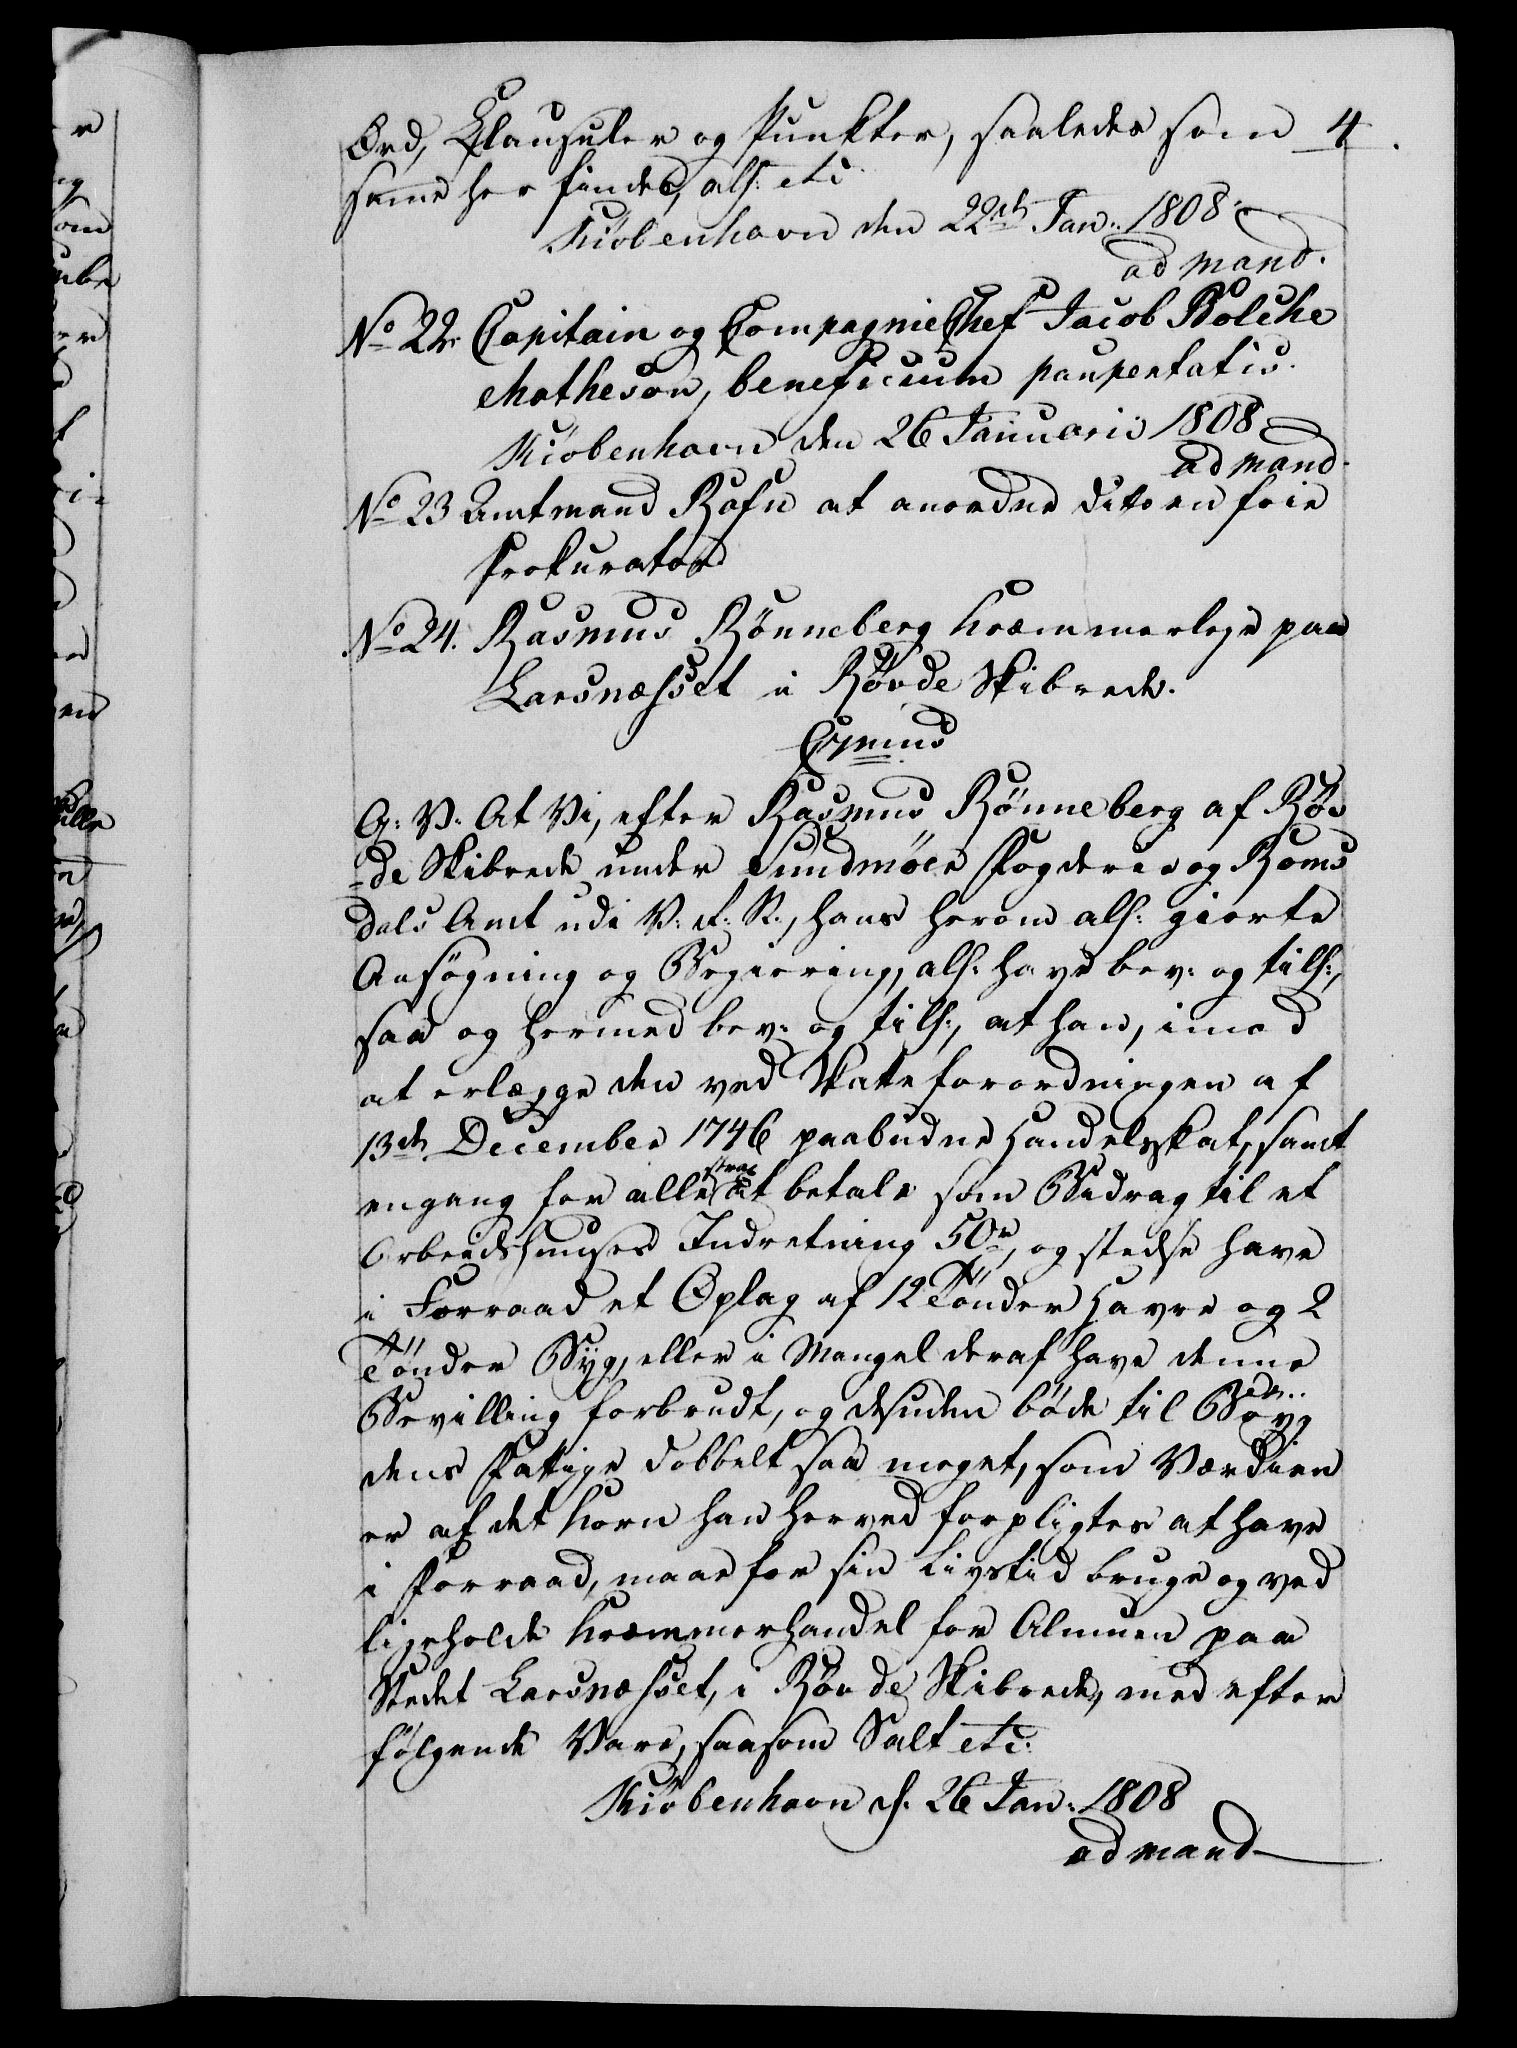 Ord, Clausuler og Punkter, saaledes som 4.
samme her findes, als: etc
Kiöbenhavn den 22de Jan: 1808.
ad mand.
No 22. Capitain og CompagnieChef Jacob Bolche
Matheson, beneficium paupertatis.
Kiöbenhavn den 26 Januarii 1808
ad mand.
No 23 Amtmand Rafn at anordne dito en frie
Prokurator
No 24. Rasmus Rönneberg Kræmmerleje paa
Larsnæsset i Rövde Skibrede.
G: V. At Vi, efter Rasmus Rönneberg af Röv
-de Skibrede under Sundmöer Fogderie og Roms
dals Amt udi V: R: N:, hans herom als: giorte
Ansögning og Begiering, als: have bev: og tils:,
saa og hermed bev: og tils:, at han, imod
at erlægge den ved Skatteforordningen af
13de December 1746 paabudne Handelsskat, samt
engang for alle strax at betale som Bidrag til et
Arbeidshuuses Indretning 50 rd, og stedse have
i Forraad et Oplag af 12 Tönder Havre og 2
Tönder Byg, eller i Mangel deraf have denne
Bevilling forbrudt, og desuden böde til Böyg
dens Fattige dobbelt saa meget, som Værdien
er af det Korn han herved forpligtes at have
i Forraad, maae for sin Livstid bruge og ved
ligeholde Kræmmerhandel for Almuen paa
Stedet Larsnæsset, i Rövde Skibrede, med efter
fölgende Vare, saasom Salt etc:
Kiöbenhavn d. 26 Jan: 1808
ad mand